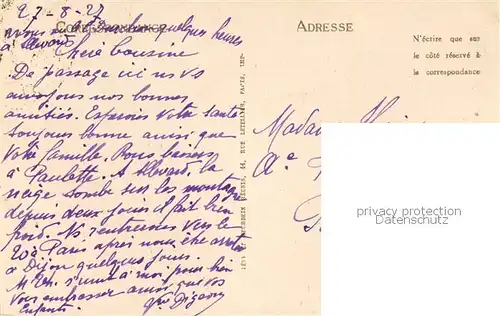 27-8-27
CORRESPONDANCE
quelques heures
à Allevard
Chère Cousine
De passage ici ns vs
envoyons nos bonnes
amitiés. Espérons votre santé
toujours bonne ainsi que
votre famille. Bons baisers
à Paulette. A Allevard la
neige tombe sur les montagnes
depuis deux jours il fait bien
froid. Ns rentrerons vers le
20 à Paris après nous être arrêtés
à Dijon quelques jours.
à moi pour bien
vous embrasser ainsi que vos
enfants.
ADRESSE
N'écrire que sur
le côté réservé à
la correspondance
44, RUE LETELLIER, PARIS
Madame
privacy protection
Datenschutz